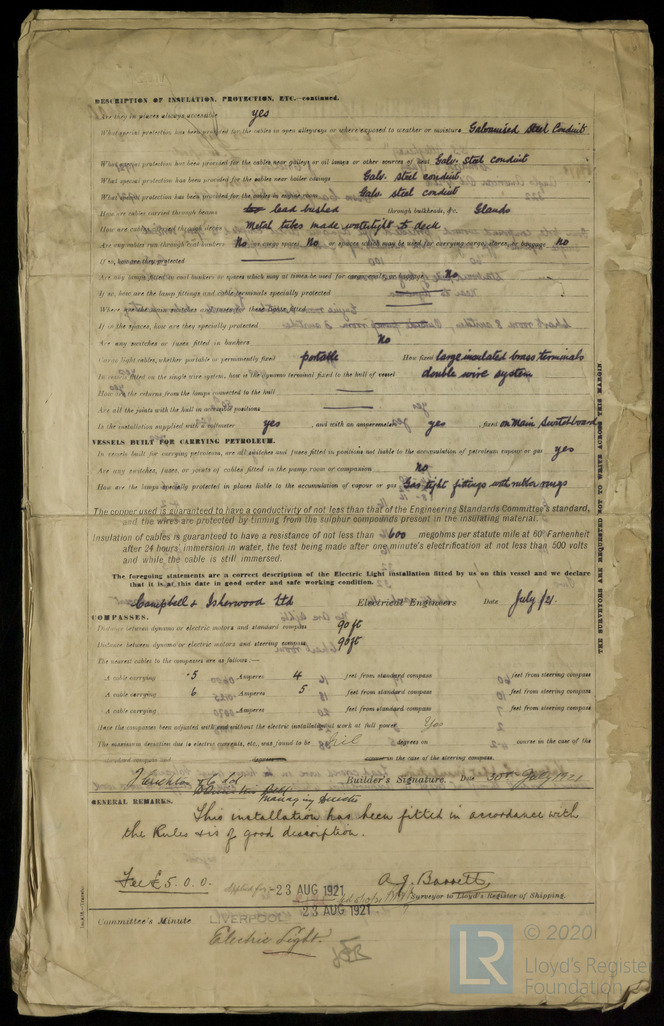 DESCRIPTION OF INSULATION, PROTECTION, ETC.—continued.
Are they in places always accessible yes
What special protection has been provided for the cables in open alleyways or where exposed to weather or moisture Galvanised Steel Conduit
What special protection has been provided for the cables near galleys or oil lamps or other sources of heat Galv. steel conduit
What special protection has been provided for the cables near boiler casings Galv. steel conduit
What special protection has been provided for the cables in engine room Galv. steel conduit
How are cables carried through beams lead bushed through bulkheads, &c. Glands
How are cables carried through decks Metal tubes made watertight to deck
Are any cables run through coal bunkers No or cargo spaces No or spaces which may be used for carrying cargo, stores, or baggage no
If so, how are they protected
Are any lamps fitted in coal bunkers or spaces which may at times be used for cargo, coals, or baggage No
If so, how are the lamp fittings and cable terminals specially protected
Where are the main switches and fuses for these lights fitted
If in the spaces, how are they specially protected
Are any switches or fuses fitted in bunkers No
Cargo light cables, whether portable or permanently fixed portable How fixed large insulated brass terminals
In vessels fitted on the single wire system, how is the dynamo terminal fixed to the hull of vessel double wire system
How are the returns from the lamps connected to the hull
Are all the joints with the hull in accessible positions
Is the installation supplied with a voltmeter yes , and with an amperemeter yes , fixed on Main Switchboard
VESSELS BUILT FOR CARRYING PETROLEUM.
In vessels built for carrying petroleum, are all switches and fuses fitted in positions not liable to the accumulation of petroleum vapour or gas yes
Are any switches, fuses, or joints of cables fitted in the pump room or companion no
How are the lamps specially protected in places liable to the accumulation of vapour or gas Gas tight fittings with rubber rings
The copper used is guaranteed to have a conductivity of not less than that of the Engineering Standards Committee's standard,
and the wires are protected by tinning from the sulphur compounds present in the insulating material.
Insulation of cables is guaranteed to have a resistance of not less than 600 megohms per statute mile at 60° Farhenheit
after 24 hours' immersion in water, the test being made after one minute's electrification at not less than 500 volts
and while the cable is still immersed.
The foregoing statements are a correct description of the Electric Light installation fitted by us on this vessel and we declare
that it is at this date in good order and safe working condition.
Campbell & Isherwood Ltd Electrical Engineers Date July /21
COMPASSES.
Distance between dynamo or electric motors and standard compass 90 ft
Distance between dynamo or electric motors and steering compass 90 ft
The nearest cables to the compasses are as follows:—
A cable carrying .5 Amperes 4 feet from standard compass feet from steering compass
A cable carrying 6 Amperes 5 feet from standard compass feet from steering compass
A cable carrying Amperes feet from standard compass feet from steering compass
Have the compasses been adjusted with and without the electric installation at work at full power Yes
The maximum deviation due to electric currents, etc., was found to be Nil degrees on course in the case of the
standard compass and degrees on in the case of the steering compass.
Builder's Signature. Date 30th July 1921
Managing Director
GENERAL REMARKS.
This installation has been fitted in accordance with
the Rules & is of good description.
Fee £5.0.0. Applied for 23 AUG 1921 A.J. Barrett
Surveyor to Lloyd's Register of Shipping.
Committee's Minute LIVERPOOL 23 AUG 1921
Electric Light.
THE SURVEYORS ARE REQUESTED NOT TO WRITE ACROSS THIS MARGIN
LR
© 2020
Lloyd's Register
Foundation